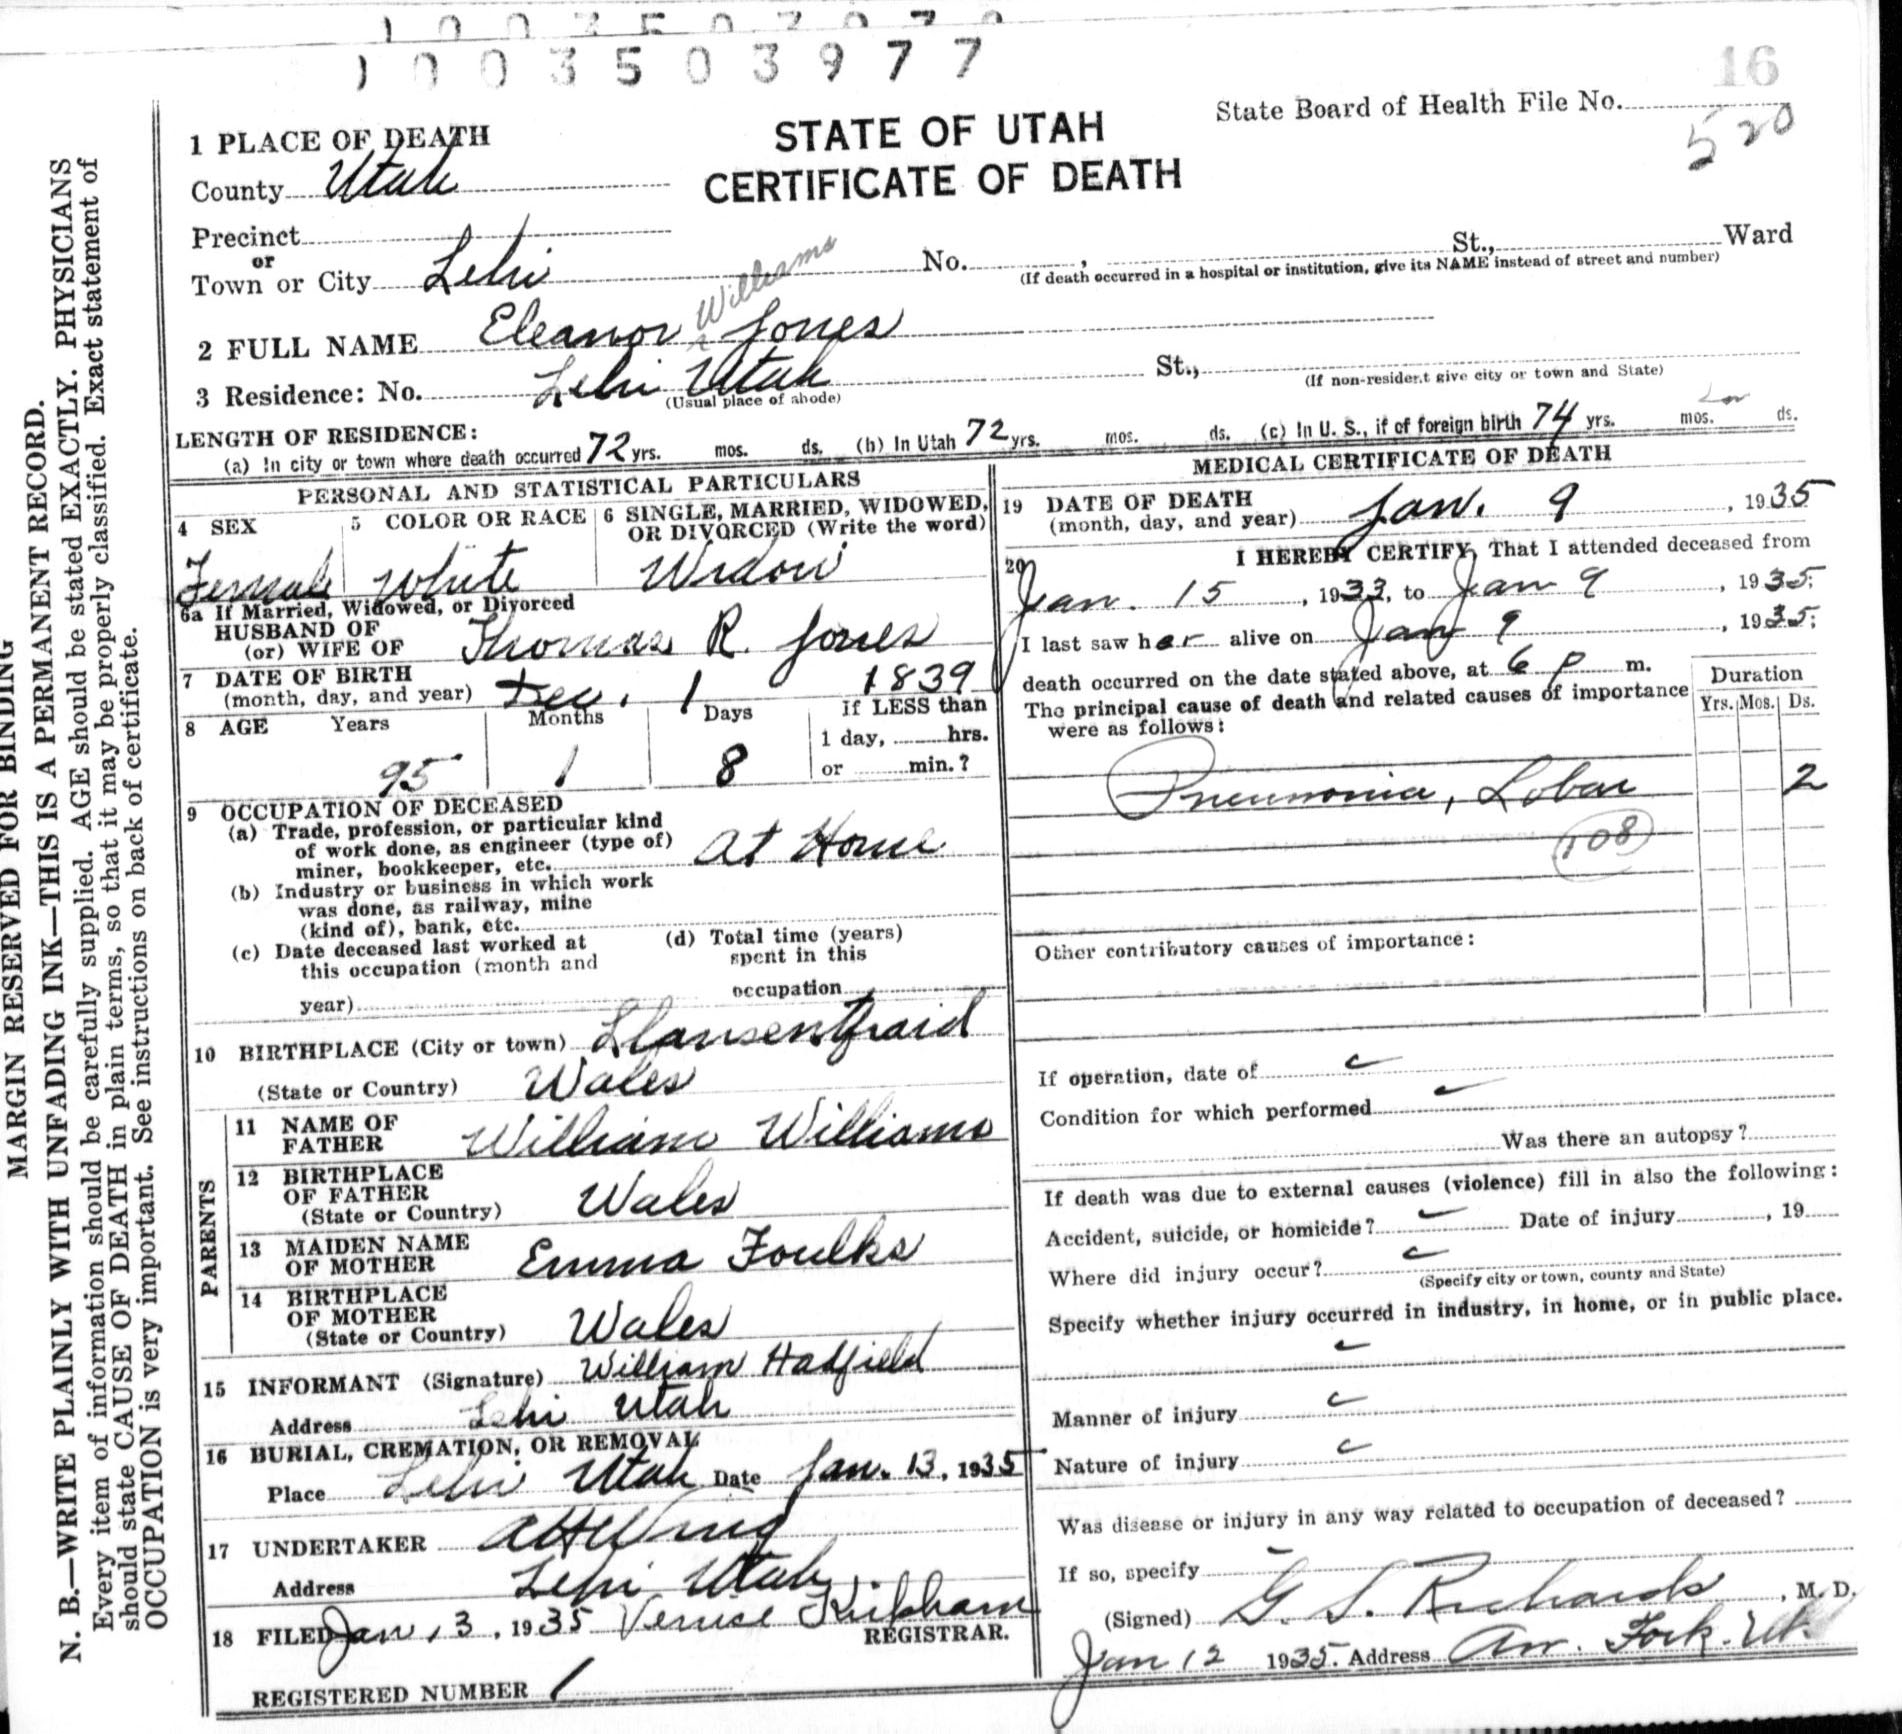 1003503977
16
State Board of Health File No.
520
STATE OF UTAH
CERTIFICATE OF DEATH
1 PLACE OF DEATH
County Utah
Precinct
or
Town or City Lehi
No. , St., Ward
(If death occurred in a hospital or institution, give its NAME instead of street and number)
Williams
2 FULL NAME Eleanor ^ Jones
3 Residence: No. Lehi Utah St.,
(Usual place of abode) (If non-resident give city or town and State)
LENGTH OF RESIDENCE:
(a) In city or town where death occurred 72 yrs. mos. ds. (b) In Utah 72 yrs. mos. ds. (c) In U. S., if of foreign birth 74 yrs. mos. ds.
PERSONAL AND STATISTICAL PARTICULARS
4 SEX
Female
5 COLOR OR RACE
White
6 SINGLE, MARRIED, WIDOWED,
OR DIVORCED (Write the word)
Widow
6a If Married, Widowed, or Divorced
HUSBAND OF
(or) WIFE OF Thomas R. Jones
7 DATE OF BIRTH
(month, day, and year) Dec. 1 1839
8 AGE Years Months Days If LESS than
1 day, hrs.
95 1 8 or min.?
9 OCCUPATION OF DECEASED
(a) Trade, profession, or particular kind
of work done, as engineer (type of)
miner, bookkeeper, etc. at Home
(b) Industry or business in which work
was done, as railway, mine
(kind of), bank, etc.
(c) Date deceased last worked at
this occupation (month and
year)
(d) Total time (years)
spent in this
occupation
10 BIRTHPLACE (City or town) Llansentfraid
(State or Country) Wales
PARENTS
11 NAME OF
FATHER William Williams
12 BIRTHPLACE
OF FATHER
(State or Country) Wales
13 MAIDEN NAME
OF MOTHER Emma Foulks
14 BIRTHPLACE
OF MOTHER
(State or Country) Wales
15 INFORMANT (Signature) William Hadfield
Address Lehi Utah
16 BURIAL, CREMATION, OR REMOVAL
Place Lehi Utah Date Jan. 13, 1935
17 UNDERTAKER
Address Lehi Utah
18 FILED Jan, 3, 1935 Venice Kirkham
REGISTRAR.
REGISTERED NUMBER 1
MEDICAL CERTIFICATE OF DEATH
19 DATE OF DEATH
(month, day, and year) Jan. 9, 1935
20 I HEREBY CERTIFY, That I attended deceased from
Jan. 15, 1933, to Jan 9, 1935;
I last saw her alive on Jan 9, 1935;
death occurred on the date stated above, at 6 p m.
The principal cause of death and related causes of importance
were as follows:
Duration
Yrs. Mos. Ds.
Pneumonia, Lobar 2
108
Other contributory causes of importance:
If operation, date of
Condition for which performed
Was there an autopsy?
If death was due to external causes (violence) fill in also the following:
Accident, suicide, or homicide? Date of injury , 19
Where did injury occur?
(Specify city or town, county and State)
Specify whether injury occurred in industry, in home, or in public place.
Manner of injury
Nature of injury
Was disease or injury in any way related to occupation of deceased?
If so, specify
(Signed) G. S. Richards, M. D.
Jan 12 1935. Address Am. Fork. Ut.
MARGIN RESERVED FOR BINDING
N. B.—WRITE PLAINLY WITH UNFADING INK—THIS IS A PERMANENT RECORD.
Every item of information should be carefully supplied. AGE should be stated EXACTLY. PHYSICIANS
should state CAUSE OF DEATH in plain terms, so that it may be properly classified. Exact statement of
OCCUPATION is very important. See instructions on back of certificate.